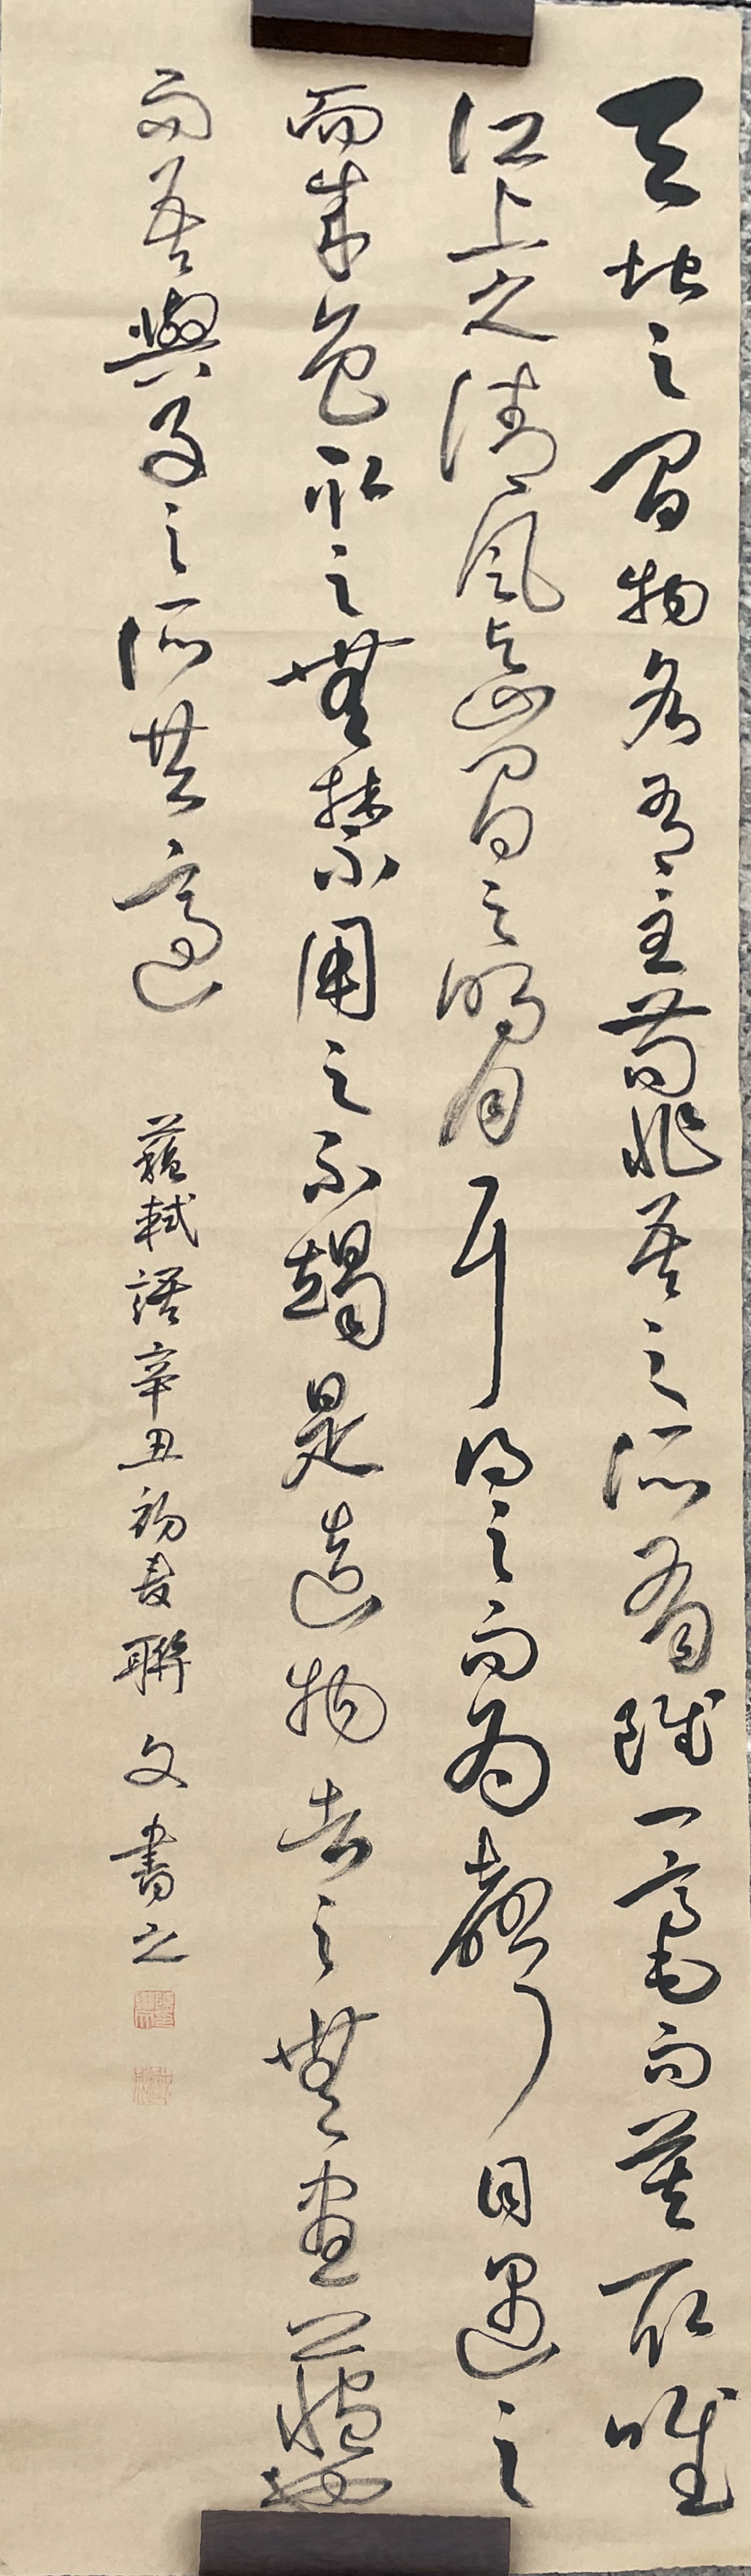 天地之間物各有主苟非吾之所有雖一毫而莫取唯
江上之清風與山間之明月耳得之而為聲目遇之
而成色取之無禁用之不竭是造物者之無盡藏也
而吾與子之所共適
蘇軾語辛丑初夏聯文書之